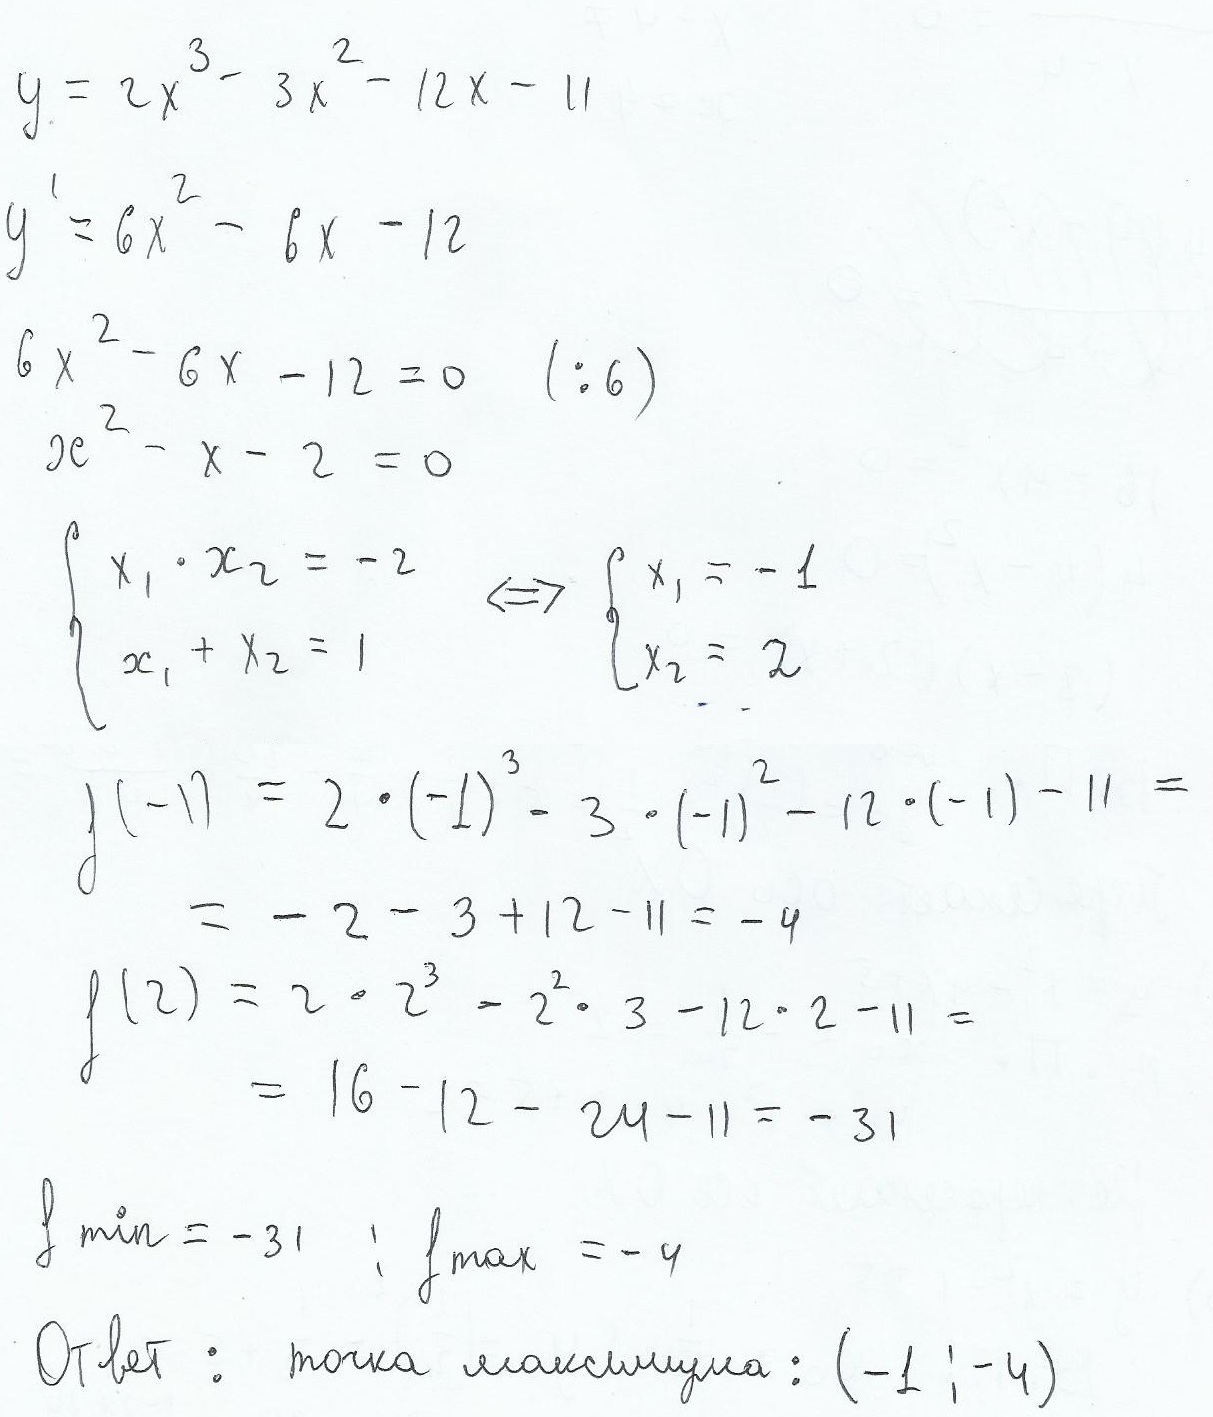 y = 2x³ - 3x² - 12x - 11
y' = 6x² - 6x - 12
6x² - 6x - 12 = 0 (:6)
x² - x - 2 = 0
{ x₁ · x₂ = -2 ⇔ { x₁ = -1
x₁ + x₂ = 1 x₂ = 2
f(-1) = 2 · (-1)³ - 3 · (-1)² - 12 · (-1) - 11 =
= - 2 - 3 + 12 - 11 = - 4
f(2) = 2 · 2³ - 2² · 3 - 12 · 2 - 11 =
= 16 - 12 - 24 - 11 = - 31
f min = - 31 ; f max = - 4
Ответ : точка максимума : (-1 ; -4)